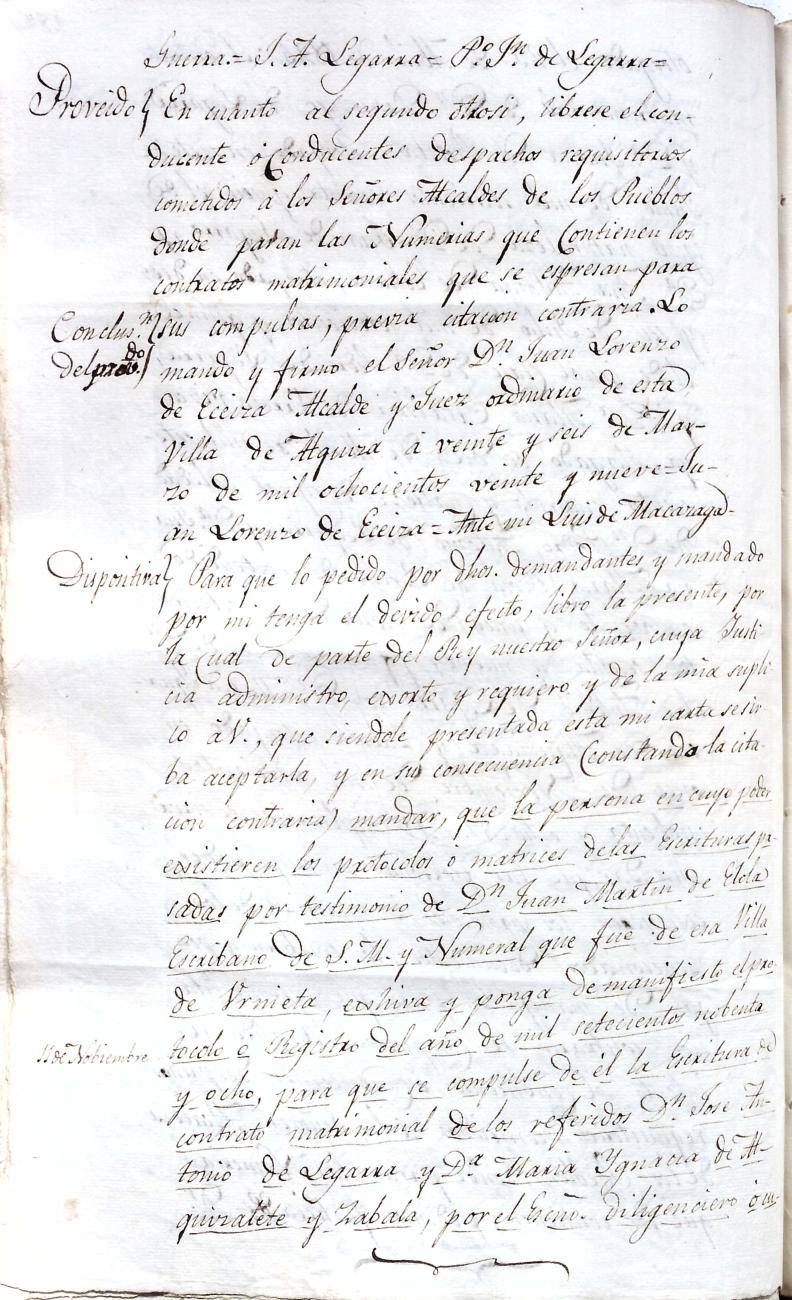 Guerra.= J. A. Legarra = P.º Jⁿ de Legarra=
Proveido } En cuanto al segundo otrosi, librese el con-
ducente ó Conducentes despachos requisitorios
cometidos à los Señores Alcaldes de los Pueblos
donde paran las Numerias que Contienen los
contratos matrimoniales que se espresan para
Conclus.ⁿ } sus compulsas, previa citacion contraria. Lo
del prov.do } mando y firmo el Señor Dⁿ Juan Lorenzo
de Eceiza Alcalde y Juez ordinario de esta
Villa de Alquiza à veinte y seis de Mar-
zo de mil ochocientos veinte y nueve=Ju-
an Lorenzo de Eceiza = Ante mi Luis de Macazaga-
Dispositiva } Para que lo pedido por dhos. demandantes y mandado
por mi tenga el devido efecto, libro la presente, por
la Cual de parte del Rey nuestro Señor, cuya Justi-
cia administro, exsorto y requiero y de la mia supli-
co à V., que siendole presentada esta mi carta se sir-
ba aceptarla, y en su consecuencia (constando la cita-
cion contraria) mandar, que la persona en cuyo poder
exsistieren los protocolos ó matrices de las Escrituras pa-
sadas por testimonio de Dⁿ Juan Martin de Elola
Escribano de S. M. y Numeral que fue de esa Villa
de Vrnieta, exshiva y ponga de manifiesto el pro-
11 de Nobiembre tocolo ó Registro del año de mil setecientos nobenta
y ocho, para que se compulse de él la Escritura de
contrato matrimonial de los referidos Dⁿ Jose An-
tonio de Legarra y Dª Maria Ygnacia de Al-
quizalete y Zabala, por el Escño. diligenciero ó cu-